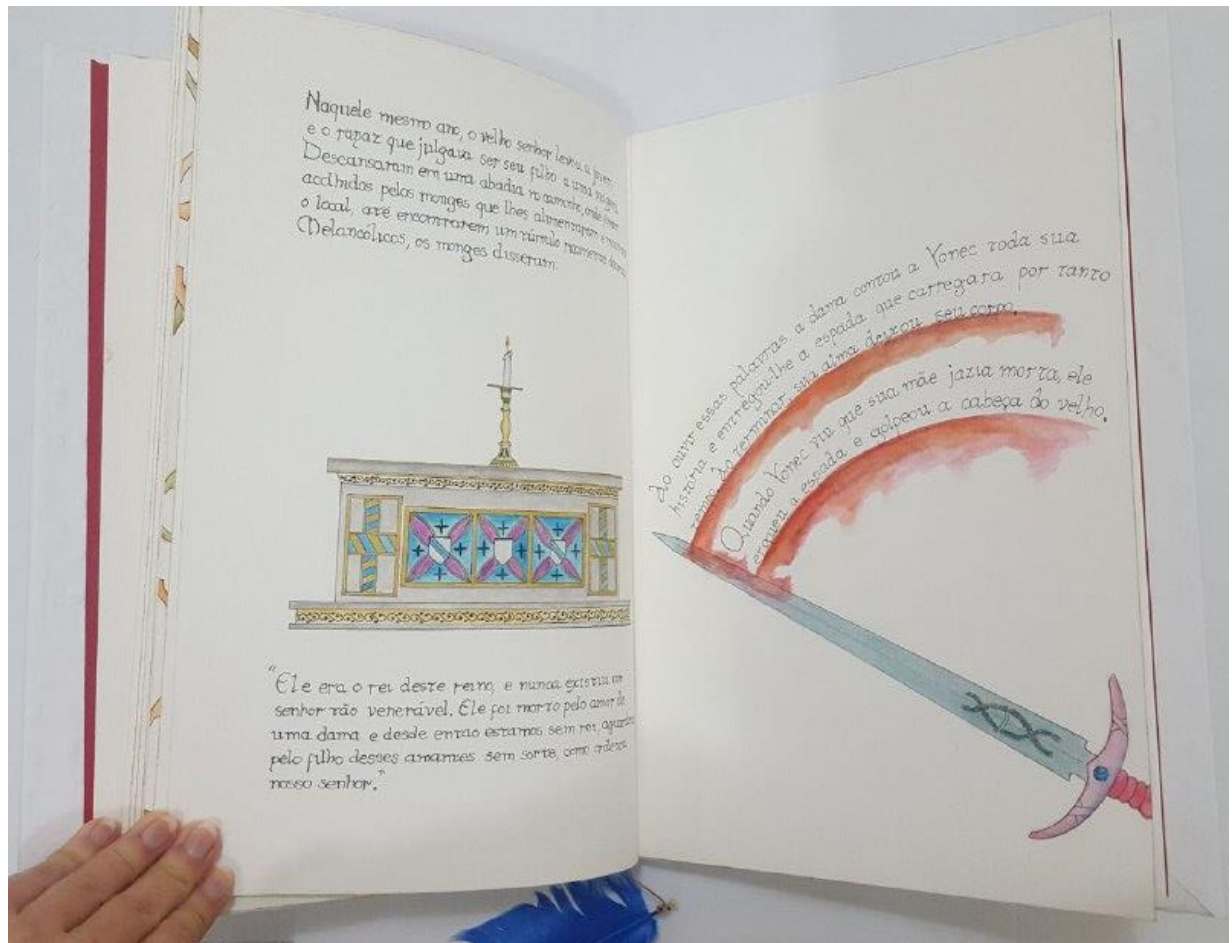 Naquele mesmo ano, o velho senhor levou a jovem
e o rapaz que julgava ser seu filho a uma viagem.
Descansaram em uma abadia no caminho, onde foram
acolhidos pelos monges que lhes alimentaram e
o local, até encontrarem um túmulo ricamente
Melancólicos, os monges disseram:
"Ele era o rei deste reino, e nunca existiu um
senhor tão venerável. Ele foi morto pelo amor de
uma dama e desde então estamos sem rei,
pelo filho desses amantes sem sorte, como ordenou
nosso senhor."
Ao ouvir essas palavras a dama contou a Yonec toda sua
história e entregou-lhe a espada que carregara por tanto
tempo. Ao terminar, sua alma deixou seu corpo.
Quando Yonec viu que sua mãe jazia morta, ele
ergueu a espada e golpeou a cabeça do velho.